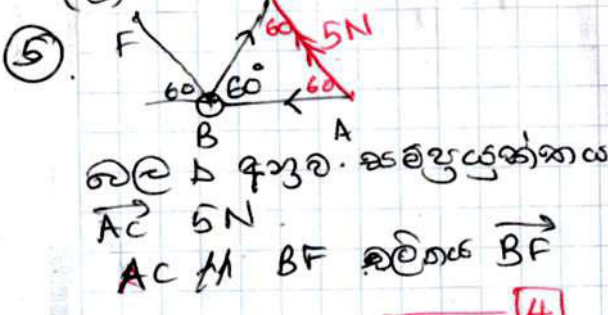 5.
F 60 5N
60 60° 60
B A
බල Δ අනුව. සම්ප්‍රයුක්තය
AC 5N
AC // BF බලිතය BF
4